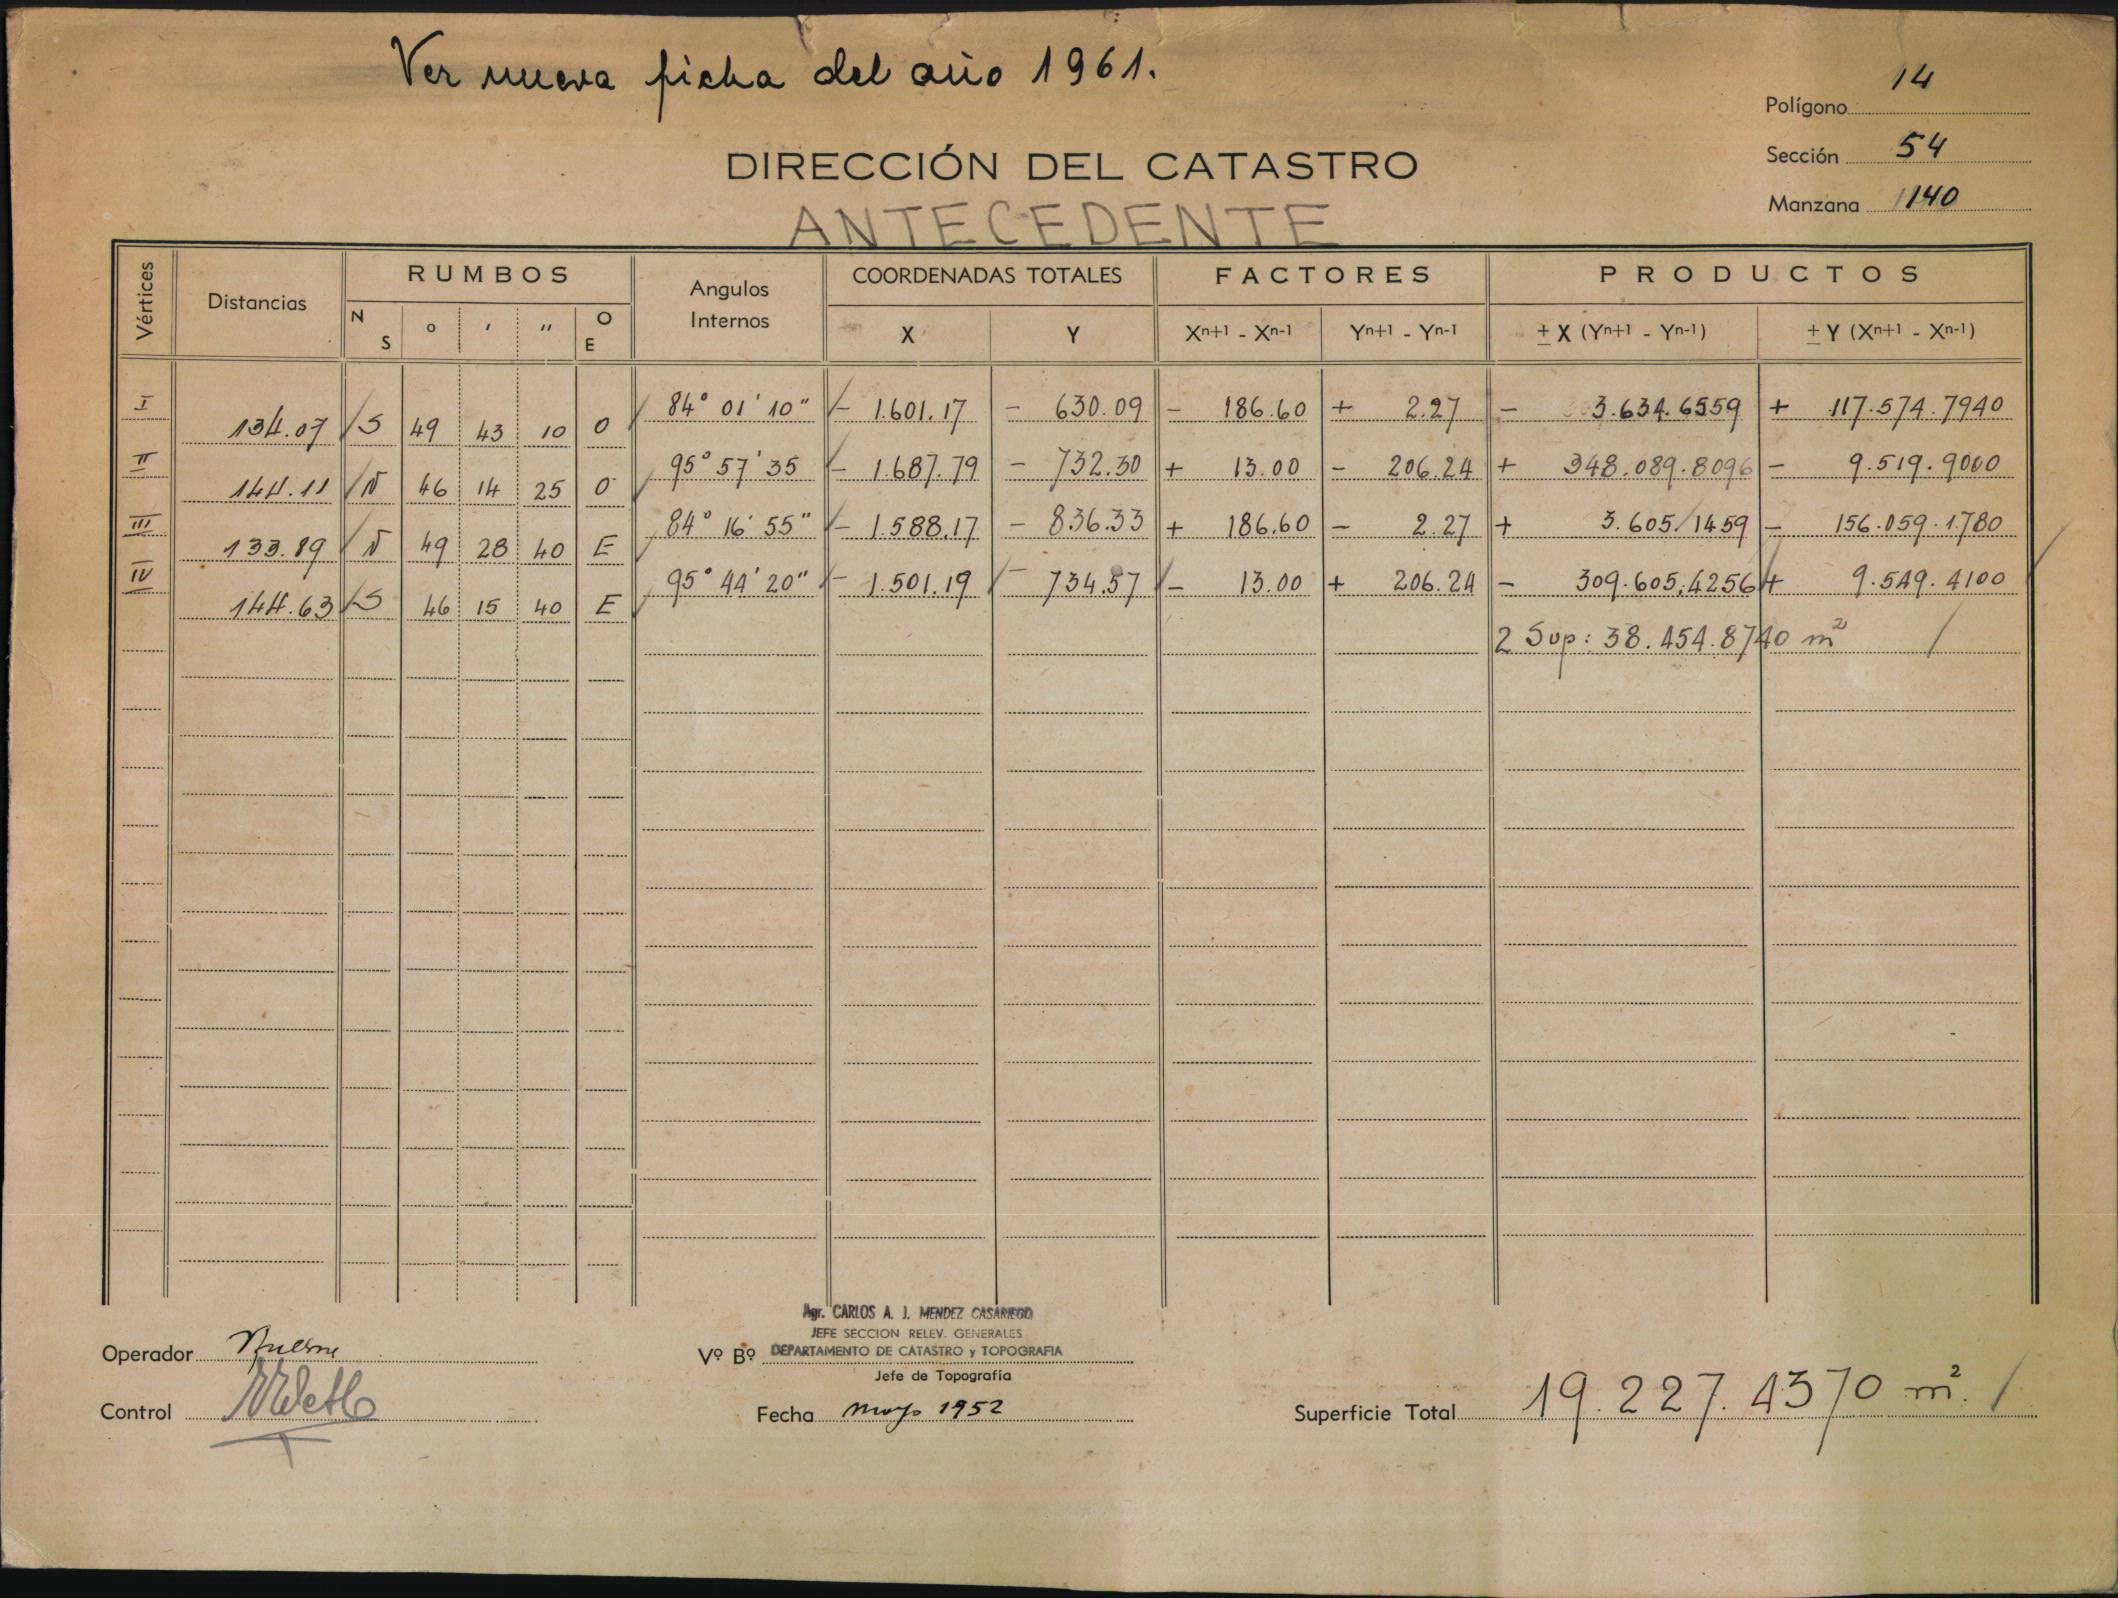 Ver nueva ficha del año 1961.
Polígono 14
Sección 54
Manzana 1140
DIRECCIÓN DEL CATASTRO
ANTECEDENTE
Vértices Distancias RUMBOS Angulos Internos COORDENADAS TOTALES FACTORES PRODUCTOS
N S ° ' " O E X Y Xn+1 - Xn-1 Yn+1 - Yn-1 ± X (Yn+1 - Yn-1) ± Y (Xn+1 - Xn-1)
I 84° 01' 10" - 1.601.17 - 630.09 - 186.60 + 2.27 - 3.634.6559 + 117.574.7940
134.07 S 49 43 10 O
II 95° 57' 35 - 1.687.79 - 732.30 + 13.00 - 206.24 + 348.089.8096 - 9.519.9000
144.11 N 46 14 25 O
III 84° 16' 55" - 1.588.17 - 836.33 + 186.60 - 2.27 + 3.605.1459 - 156.059.1780
133.89 N 49 28 40 E
IV 95° 44' 20" - 1.501.19 - 734.57 - 13.00 + 206.24 - 309.605.4256 + 9.549.4100
144.63 S 46 15 40 E
2 Sup: 38.454.8740 m²
Agr. CARLOS A. J. MENDEZ CASARIEGO
JEFE SECCION RELEV. GENERALES
DEPARTAMENTO DE CATASTRO y TOPOGRAFIA
Operador
Vº Bº
Jefe de Topografía
Control
Fecha mayo 1952
Superficie Total 19.227.4370 m².